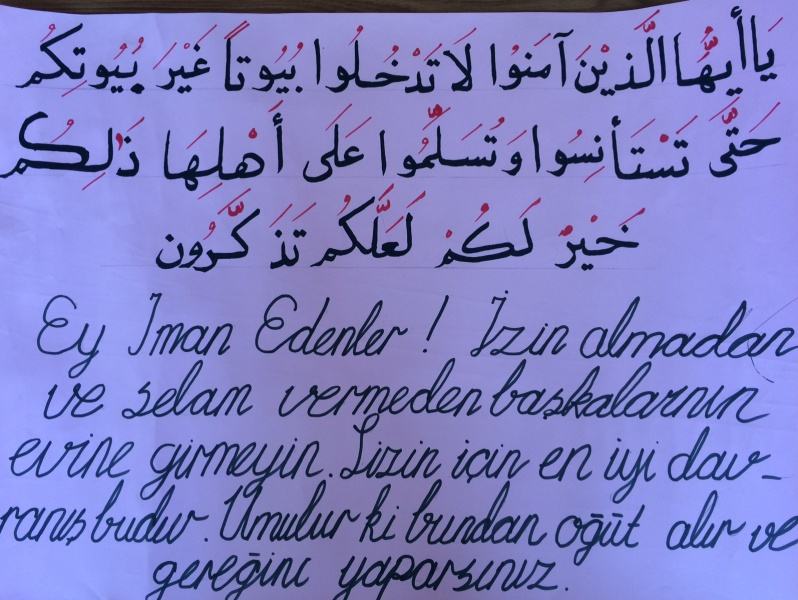 يَا أَيُّهَا الَّذِيْنَ آمَنُوا لَا تَدْخُلُوا بُيُوتاً غَيْرَ بُيُوتِكُم
حَتَّى تَسْتَأْنِسُوا وَتُسَلِّمُوا عَلَى أَهْلِهَا ذَلِكُم
خَيْرٌ لَكُمْ لَعَلَّكُم تَذَكَّرُون
Ey İman Edenler! İzin almadan
ve selam vermeden başkalarının
evine girmeyin. Sizin için en iyi dav-
ranış budur. Umulur ki bundan öğüt alır ve
gereğini yaparsınız.